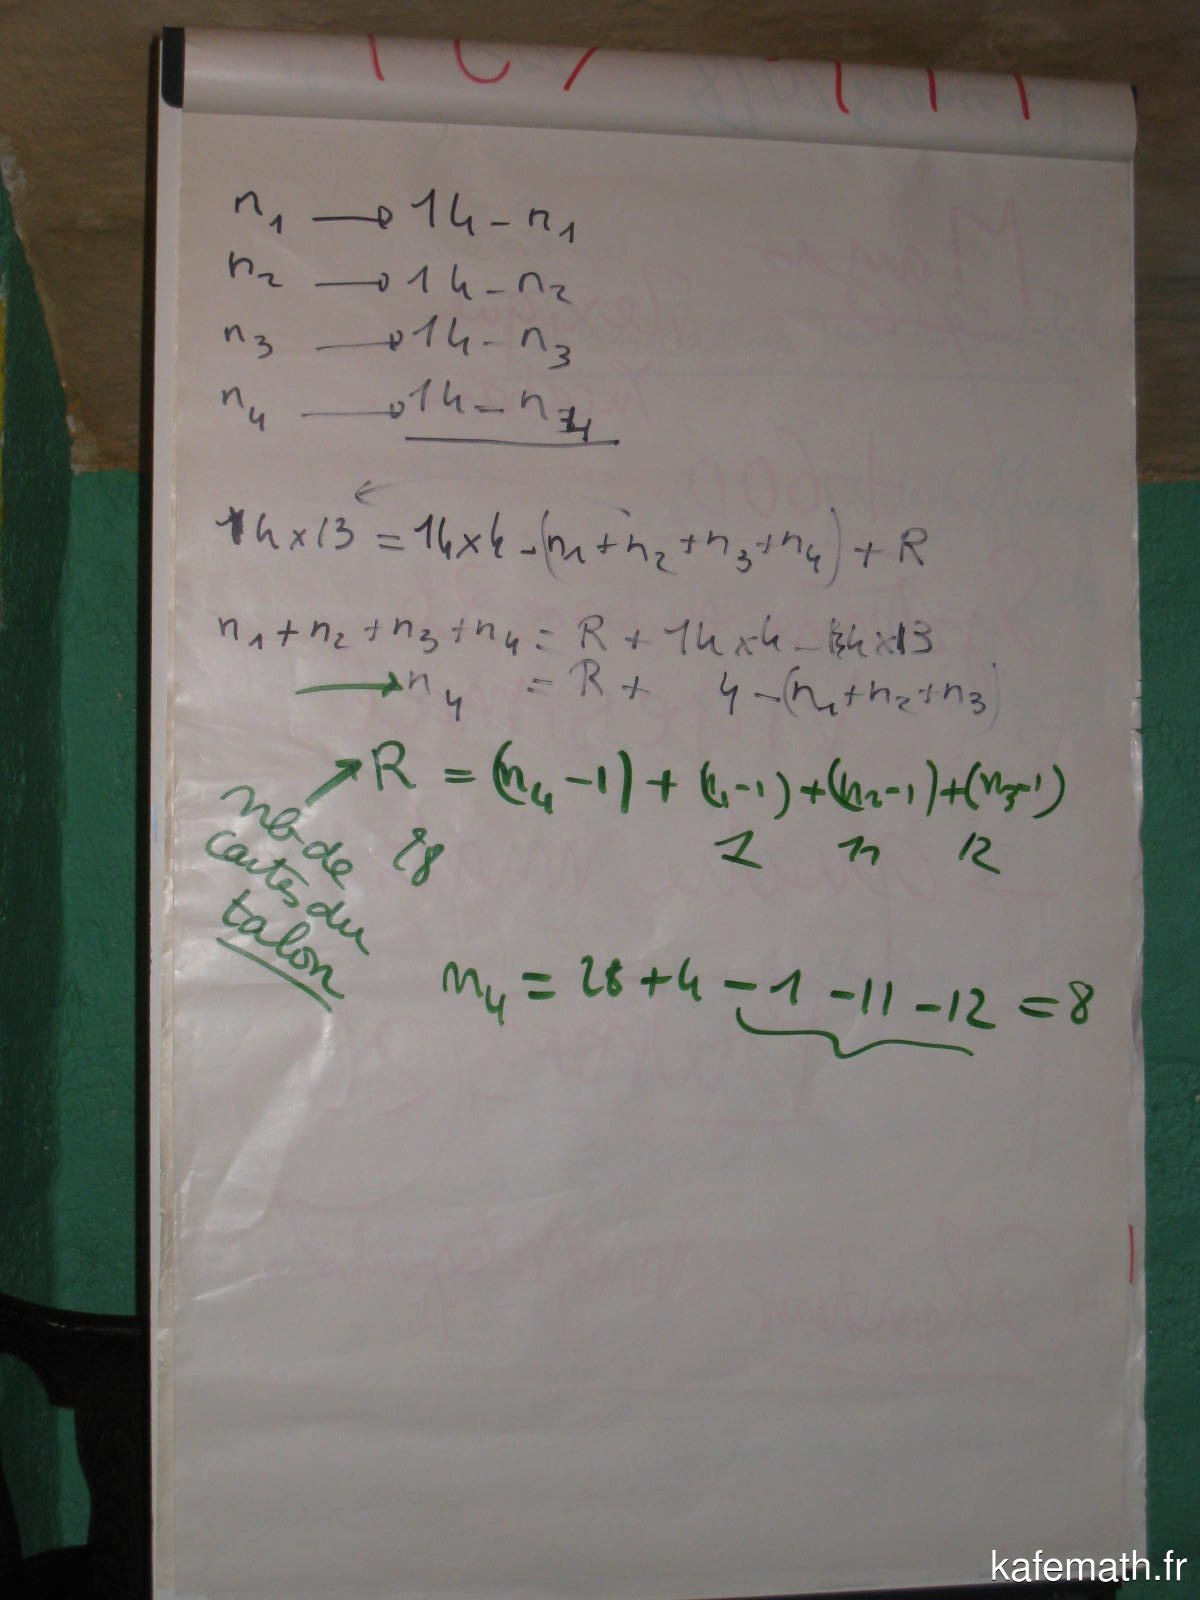 n₁ → 14 - n₁
n₂ → 14 - n₂
n₃ → 14 - n₃
n₄ → 14 - n₄
4×13 = 14×4 - (n₁ + n₂ + n₃ + n₄) + R
n₁ + n₂ + n₃ + n₄ = R + 14×4 - 4×13
→ n₄ = R + 4 - (n₁ + n₂ + n₃)
R = (n₄ - 1) + (n₁ - 1) + (n₂ - 1) + (n₃ - 1)
nb de
cartes du
talon
28 1 11 12
n₄ = 28 + 4 - 1 - 11 - 12 = 8
kafemath.fr